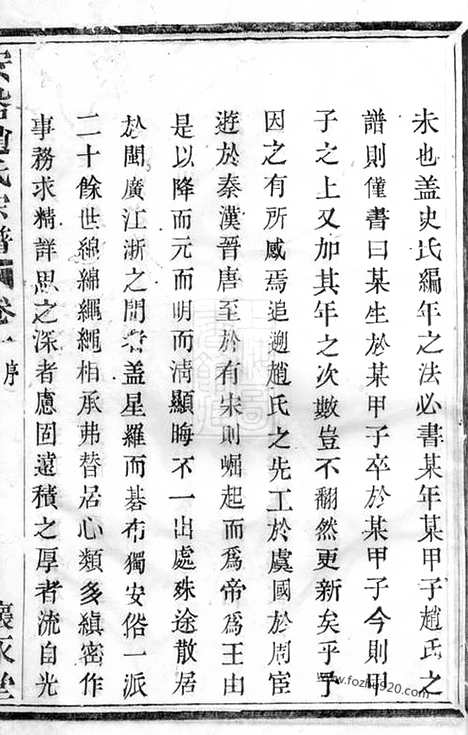 未也盖史氏編年之法必書某年某甲子趙氏之
譜則僅書曰某生於某甲子卒於某甲子今則甲
子之上又加其年之次數豈不翻然更新矣乎予
因之有所感焉追遡趙氏之先工於虞國於周宦
遊於秦漢晉唐至於有宋則崛起而為帝為王由
是以降而元而明而清顯晦不一出處殊途散居
於閩廣江浙之間者盖星羅而碁布獨安俗一派
二十餘世綿綿繩繩相承弗替居心類多縝密作
事務求精詳思之深者慮固遠積之厚者流自光
趙氏宗譜 卷一 序
www.fozhu920.com